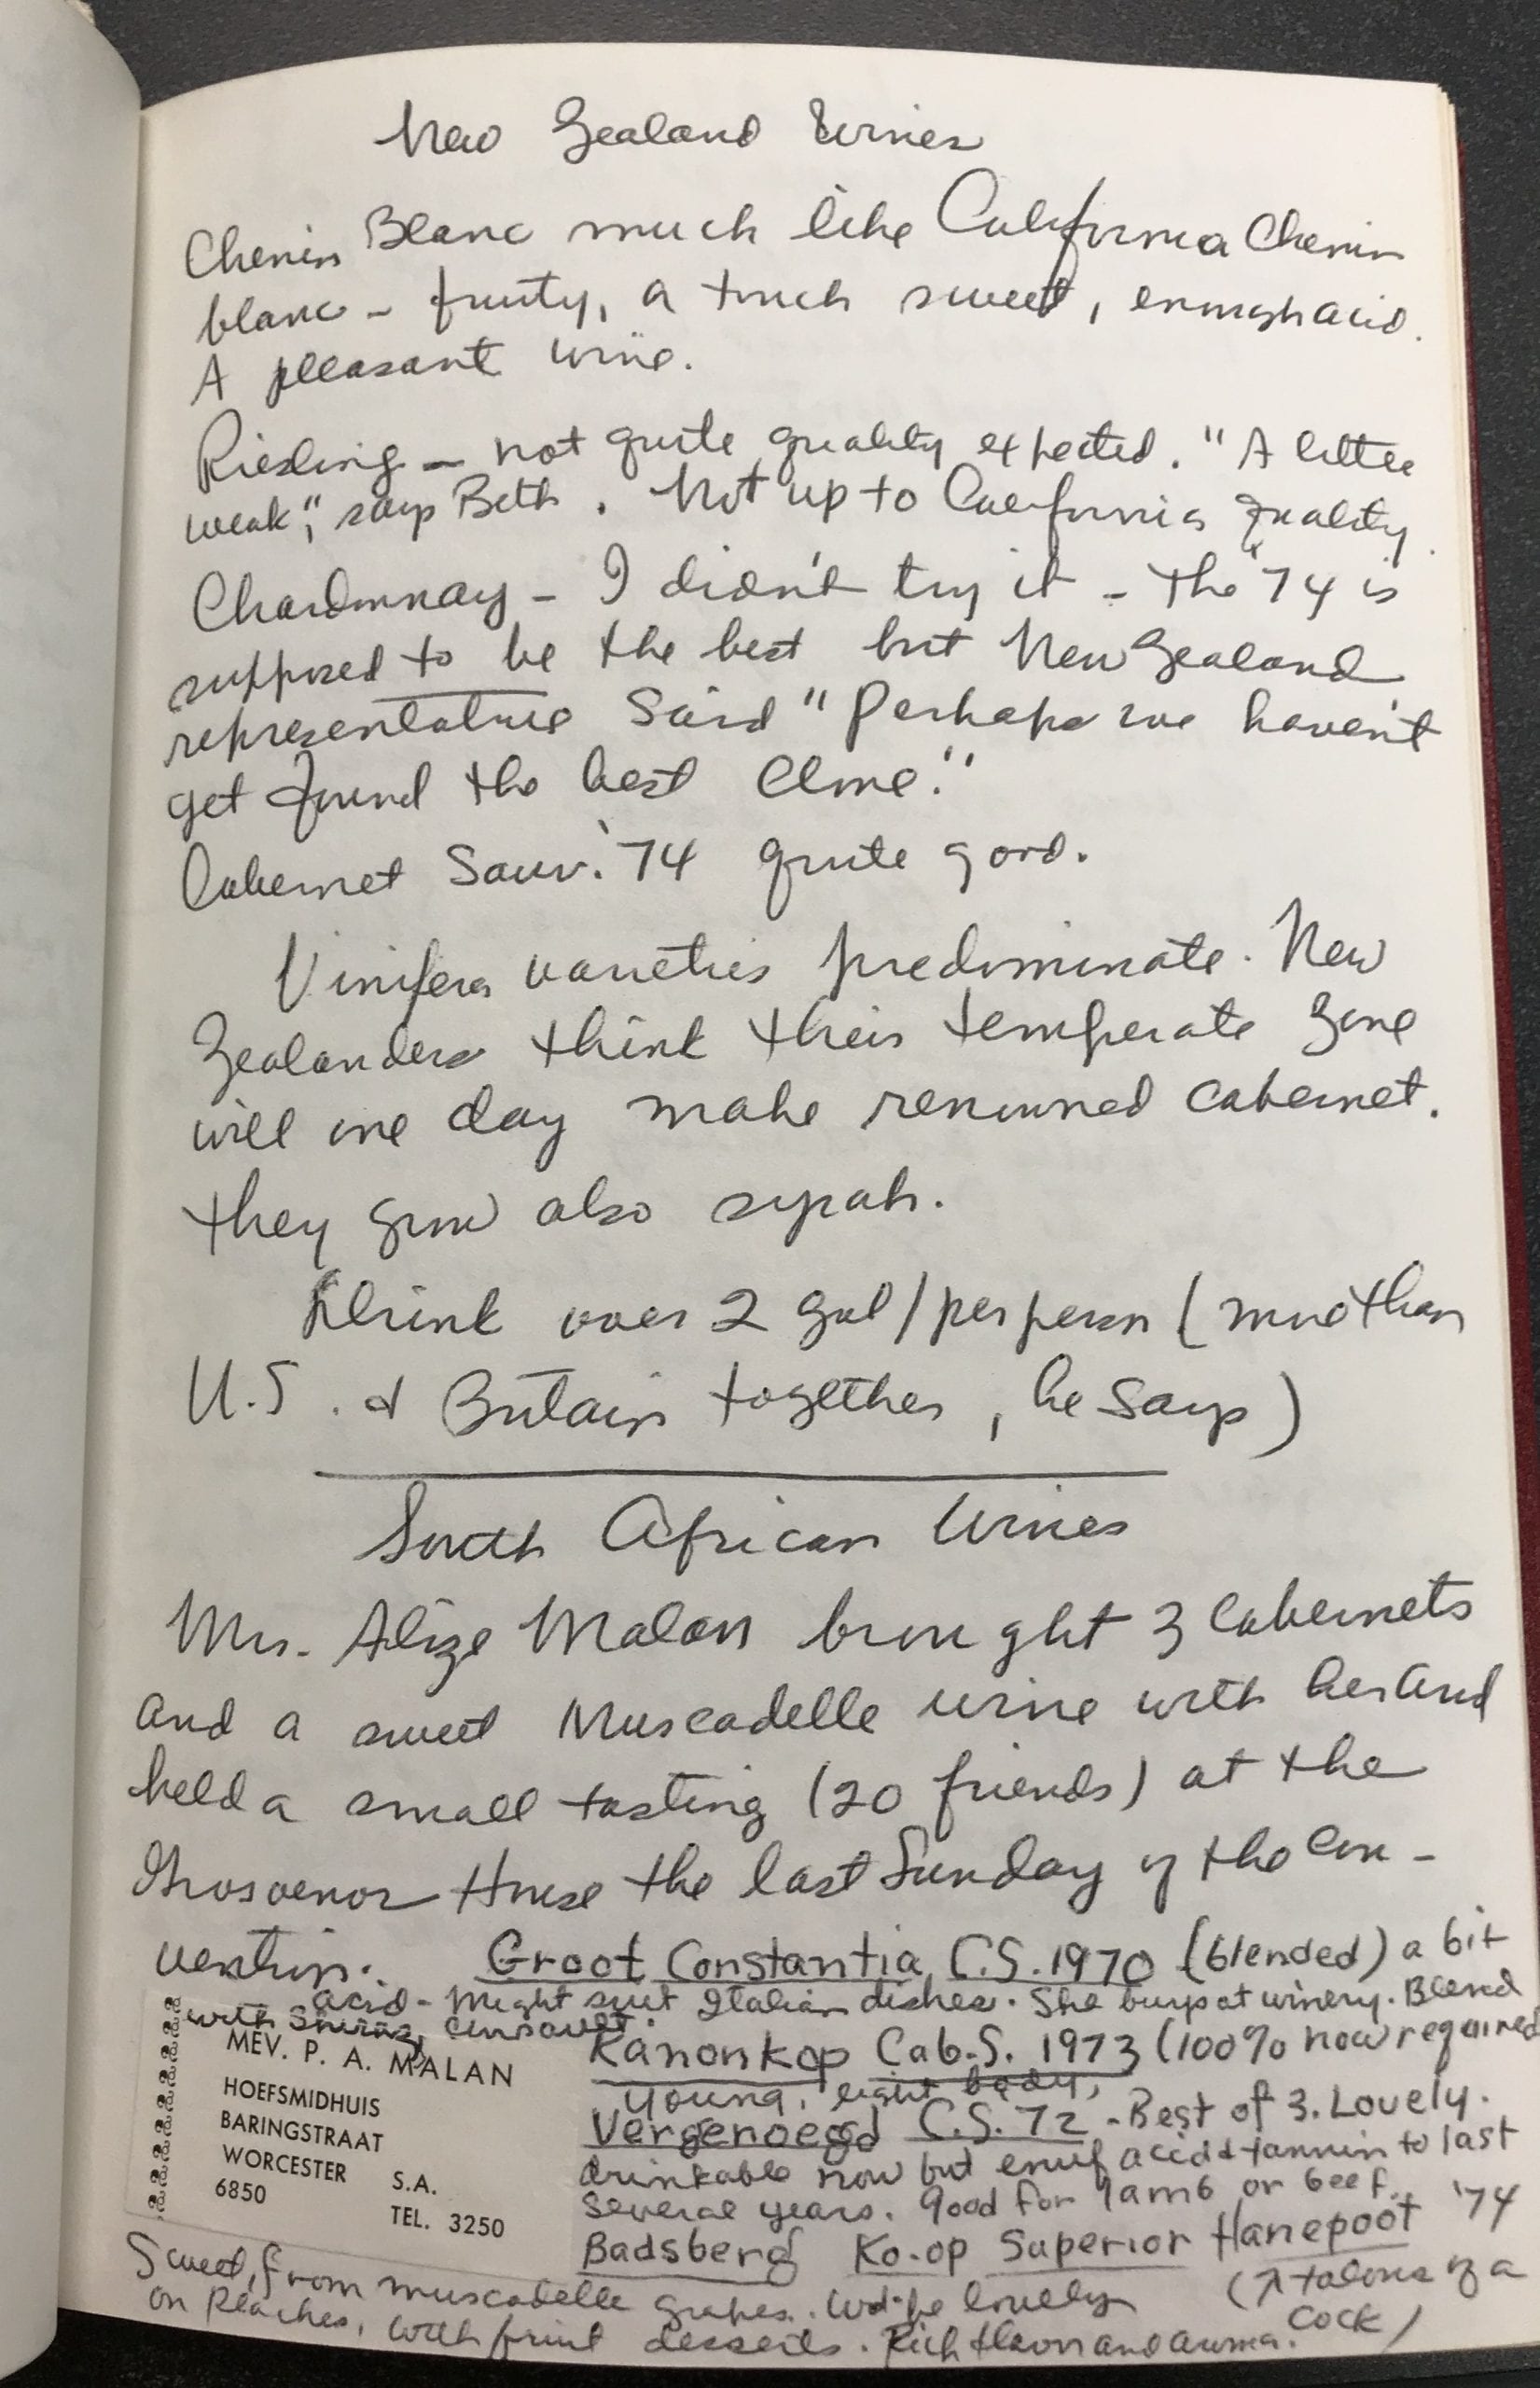 New Zealand Wines
Chenin Blanc much like California Chenin
blanc - fruity, a touch sweet, enough acid.
A pleasant wine.
Riesling - not quite quality expected. "A little
weak", says Beth. Not up to California quality.
Chardonnay - I didn't try it - the '74 is
supposed to be the best but New Zealand
representative said "Perhaps we haven't
yet found the best clone."
Cabernet Sauv. '74 quite good.
Vinifera varieties predominate. New
Zealanders think their temperate zone
will one day make renowned cabernet.
They grow also syrah.
Drink over 2 gal/per person (more than
U.S. & Britain together, he says)
South African Wines
Mrs. Alize Malan brought 3 Cabernets
and a sweet Muscadelle wine with her and
held a small tasting (20 friends) at the
Grosvenor House the last Sunday of the con-
vention. Groot Constantia C.S. 1970 (blended) a bit
acid - might suit Italian dishes. She buys at winery. Blend
with Shiraz, Cinsault.
Kanonkop Cab. S. 1973 (100% now required
young, light body,
Vergenoegd C.S. 72 - Best of 3. Lovely.
drinkable now but enuf acid & tannin to last
several years. Good for lamb or beef.
Badsberg Ko-op Superior Hanepoot '74
(↗ talons of a
cock)
MEV. P. A. MALAN
HOEFSMIDHUIS
BARINGSTRAAT
WORCESTER S.A.
6850 TEL. 3250
Sweet, from muscadelle grapes. Wd. be lovely
on peaches, with fruit desserts. Rich flavor and aroma.